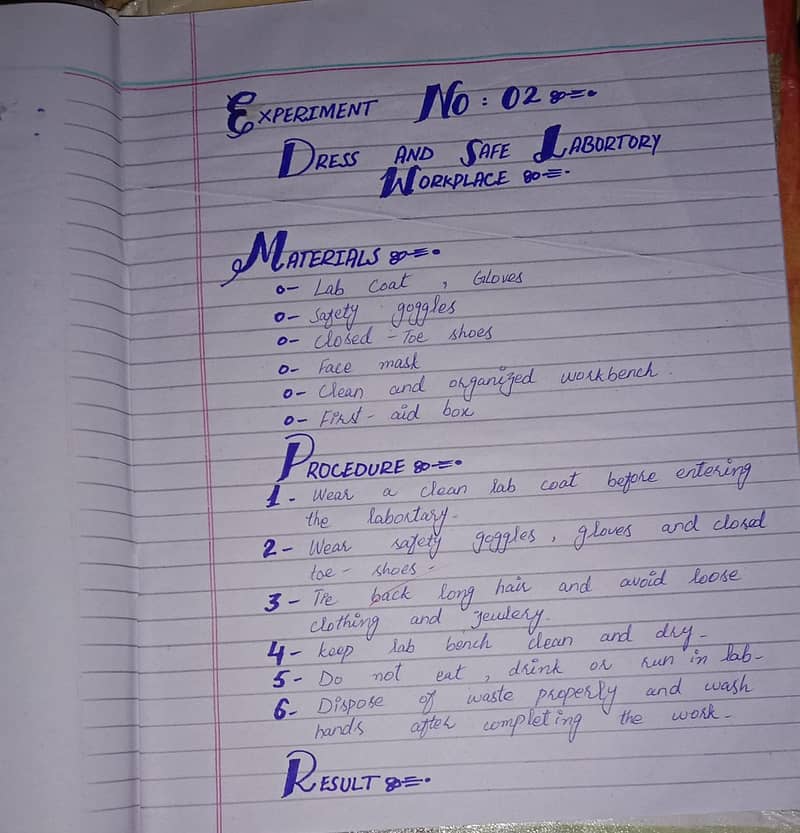 EXPERIMENT NO: 02
DRESS AND SAFE LABORTORY
WORKPLACE
MATERIALS
o- Lab coat , Gloves
o- Safety goggles
o- closed - Toe shoes
o- Face mask
o- Clean and organized workbench.
o- First-aid box
PROCEDURE
1- Wear a clean lab coat before entering
the labortary-
2- Wear safety goggles, gloves and closed
toe- shoes-
3- Tie back long hair and avoid loose
clothing and jewlery.
4- keep lab bench clean and dry-
5- Do not eat, drink or run in lab-
6- Dispose of waste properly and wash
hands after completing the work-
RESULT